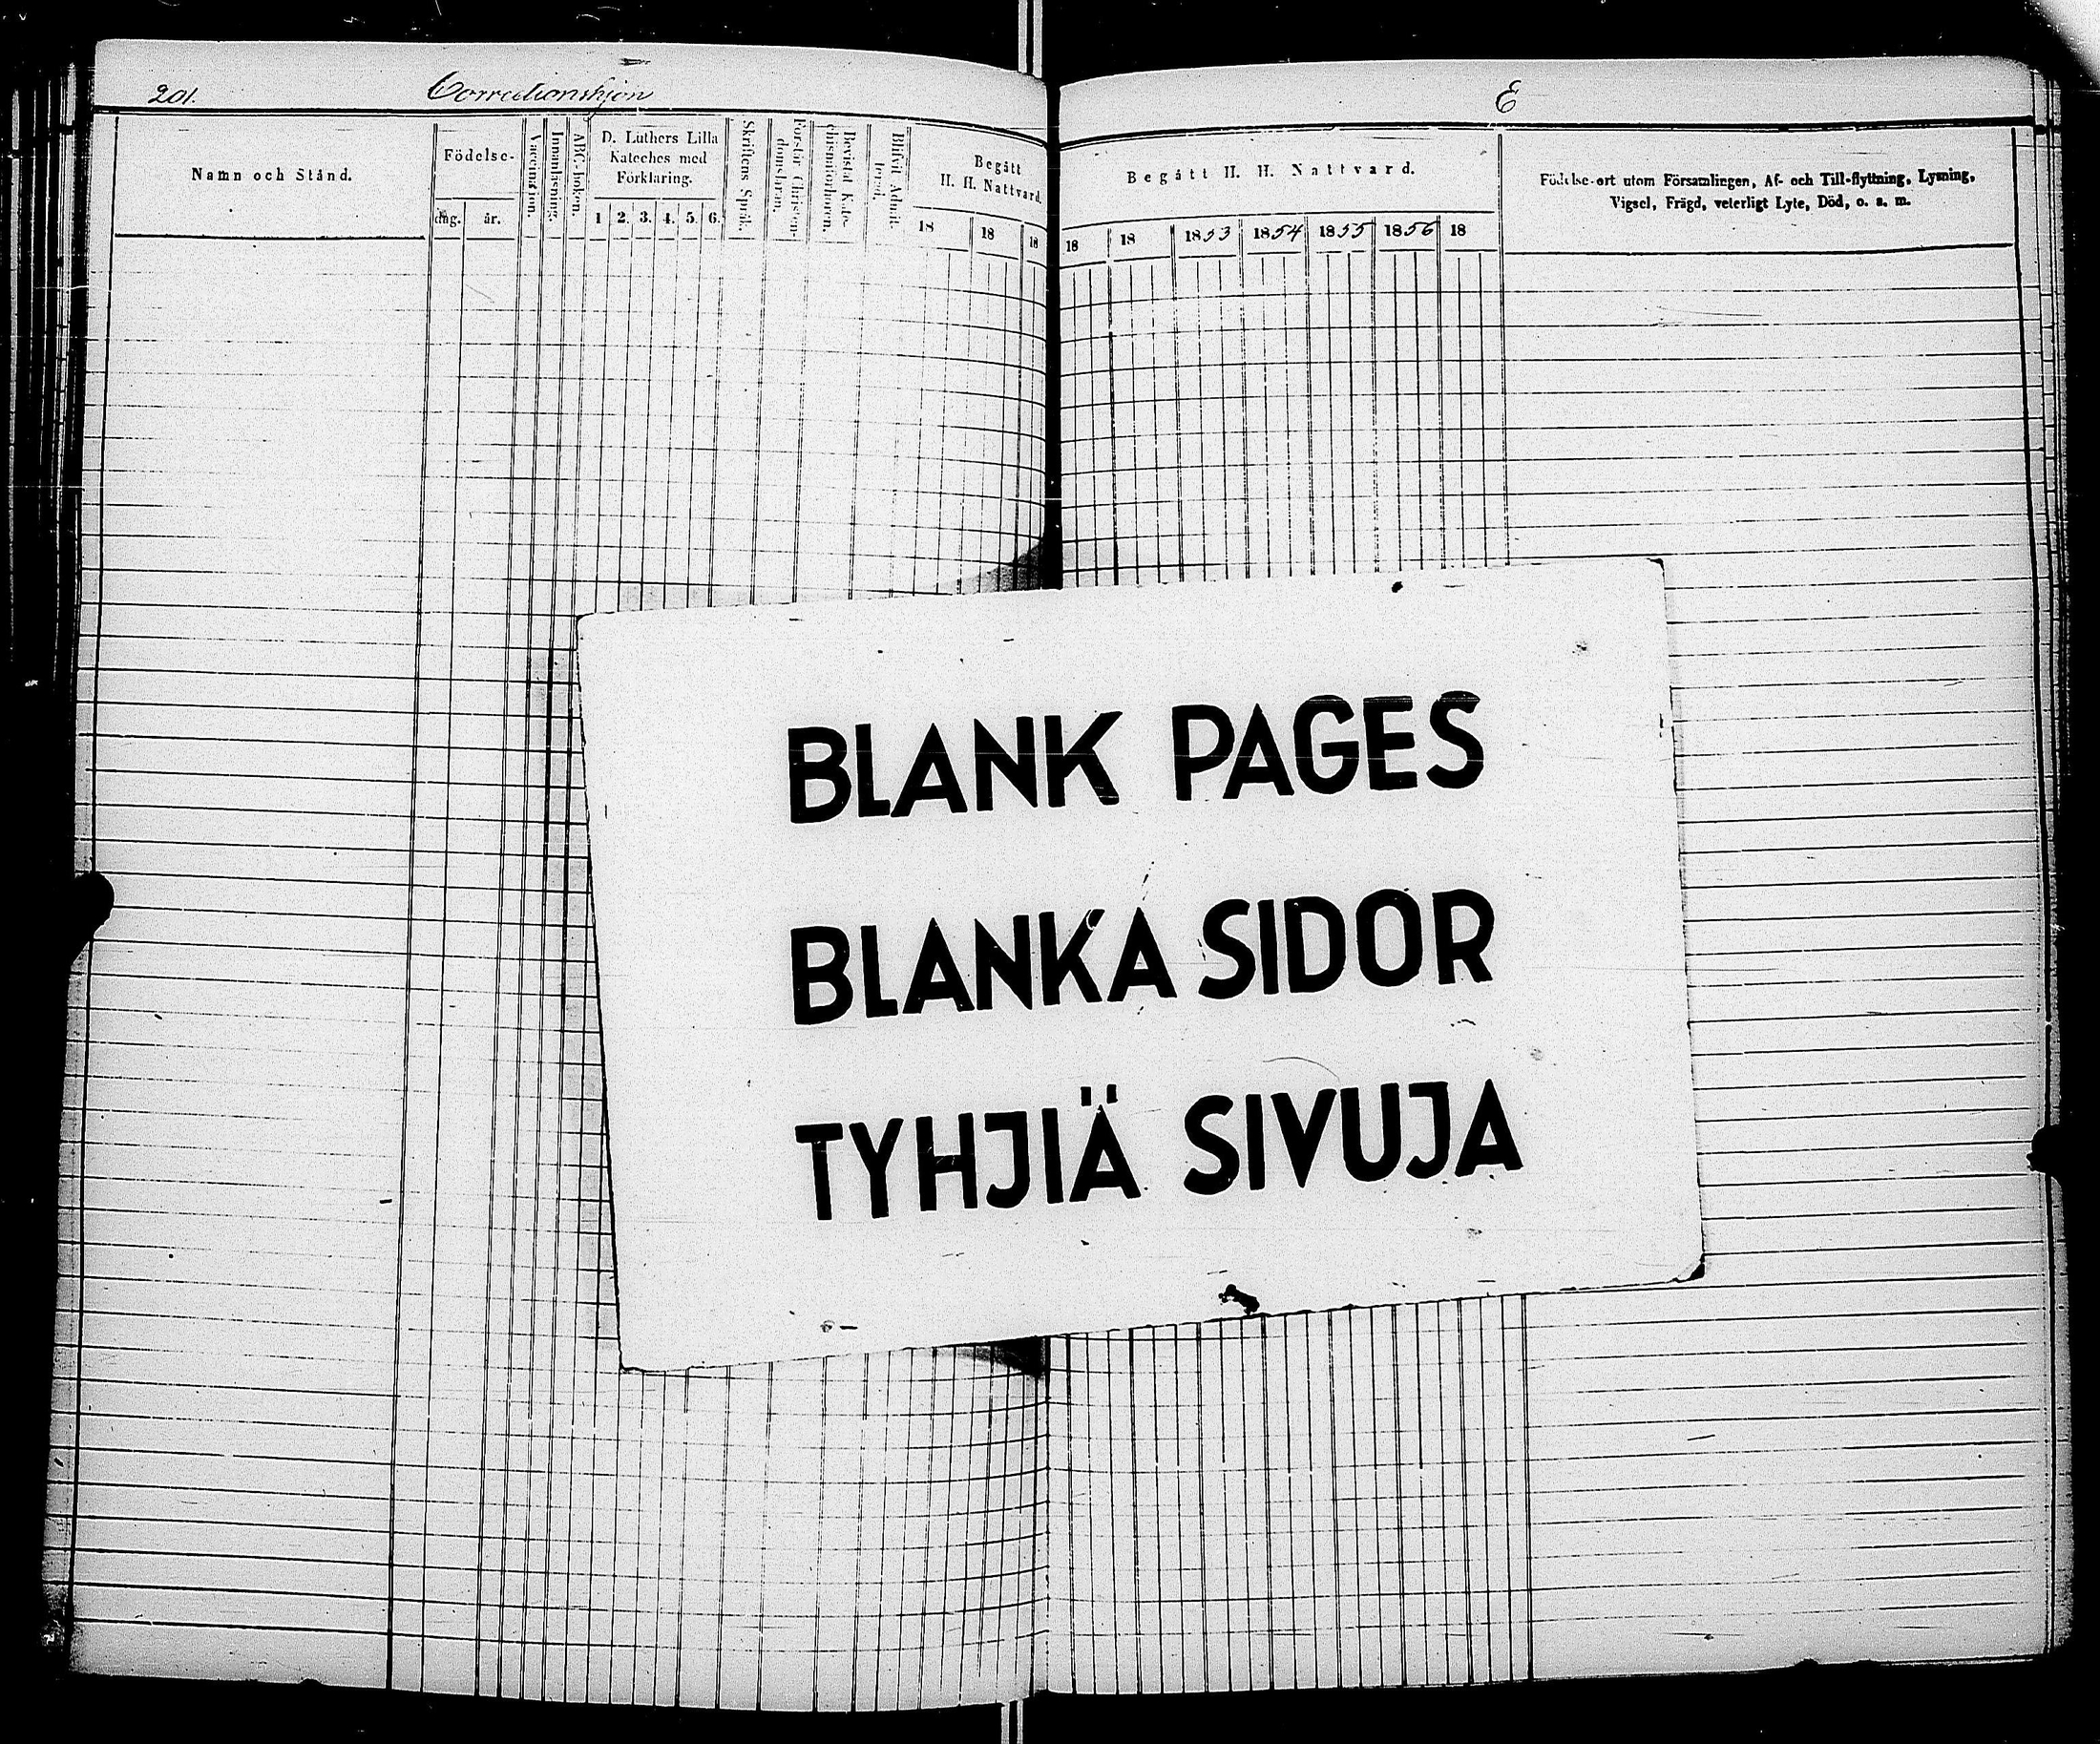 201.
Correctionshjon
E
Namn och Stånd.
Födelse-
dag.
år.
Vaccination.
Innanläsning.
ABC-boken.
D. Luthers Lilla
Kateches med
Förklaring.
1 2. 3. 4. 5. 6.
Skriftens Språk.
Förstår Christen-
domsläran.
Bevistat Kate-
chismiförhören.
Blifvit Admit-
terad.
Begått
H. H. Nattvard.
18 18 18
Begått H. H. Nattvard.
18 18 1853 1854 1855 1856 18
Födelse-ort utom Församlingen, Af- och Till-flyttning, Lysning,
Vigsel, Frägd, veterligt Lyte, Död, o. s. m.
BLANK PAGES
BLANKA SIDOR
TYHJIÄ SIVUJA